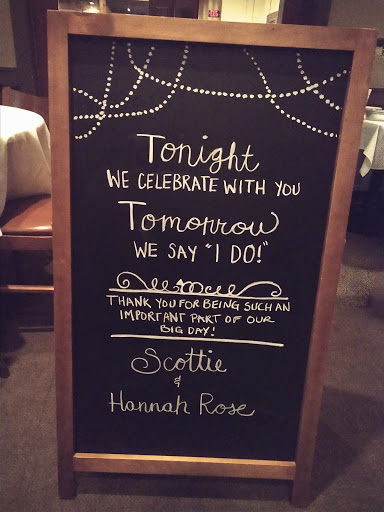 Tonight
WE CELEBRATE WITH YOU
Tomorrow
WE SAY "I DO!"
THANK YOU FOR BEING SUCH AN
IMPORTANT PART OF OUR
BIG DAY!
Scottie
&
Hannah Rose